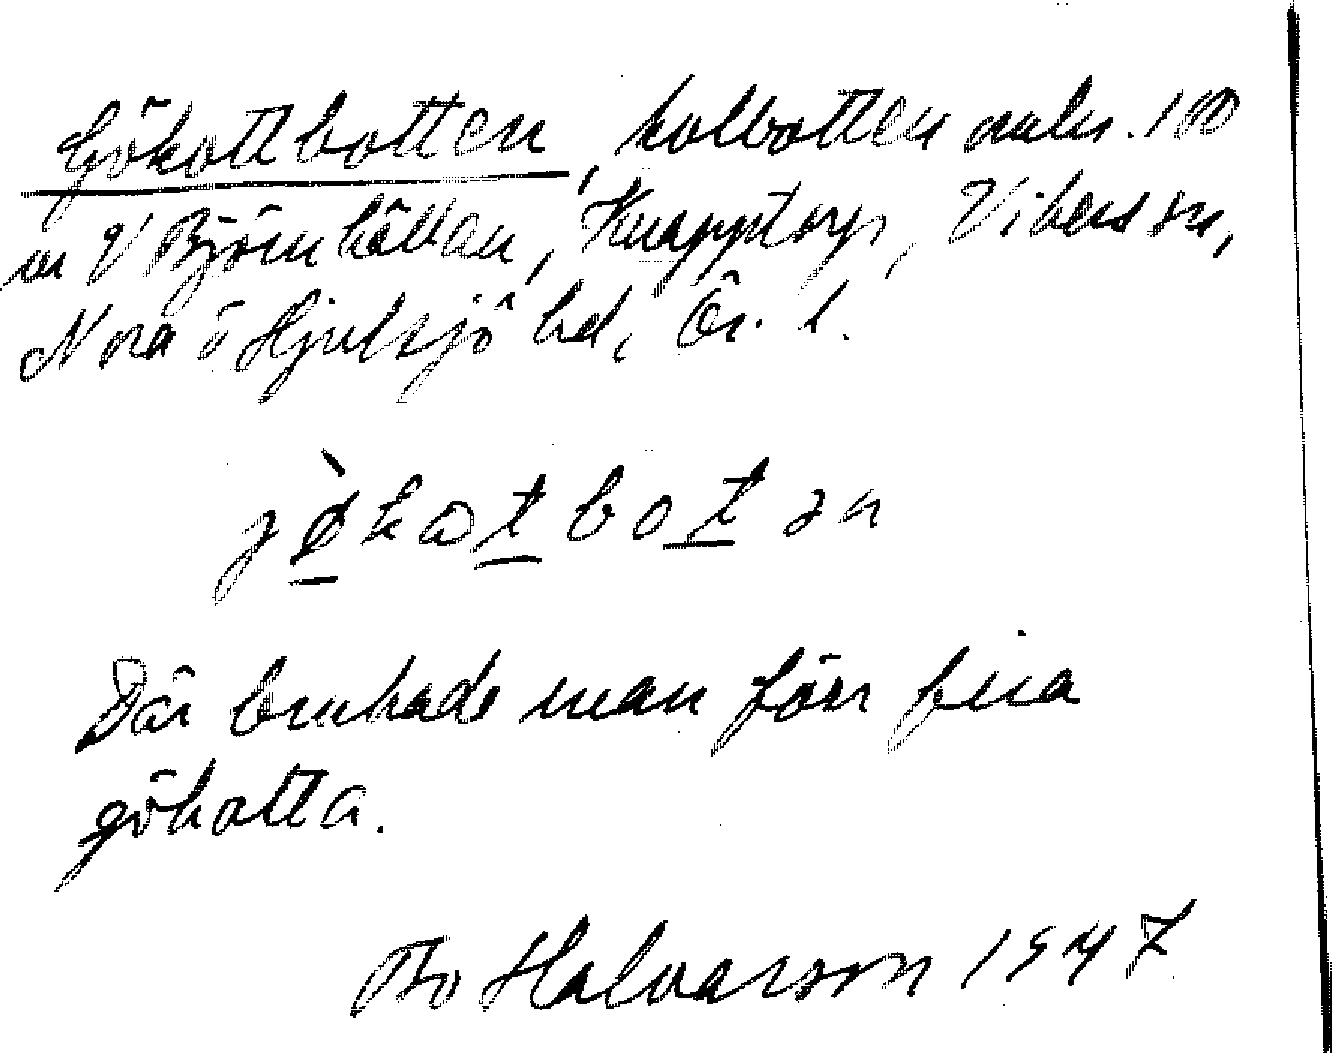 Gökottbotten, kolbotten omkr. 100
m V Björnhöllan, Knapptorp, Vikers sn,
Nora o Hjulsjö bd, Ör. l.
jø̀kotbotən
Där brukade man förr fira
gökotta.
Bo Halvarson 1947